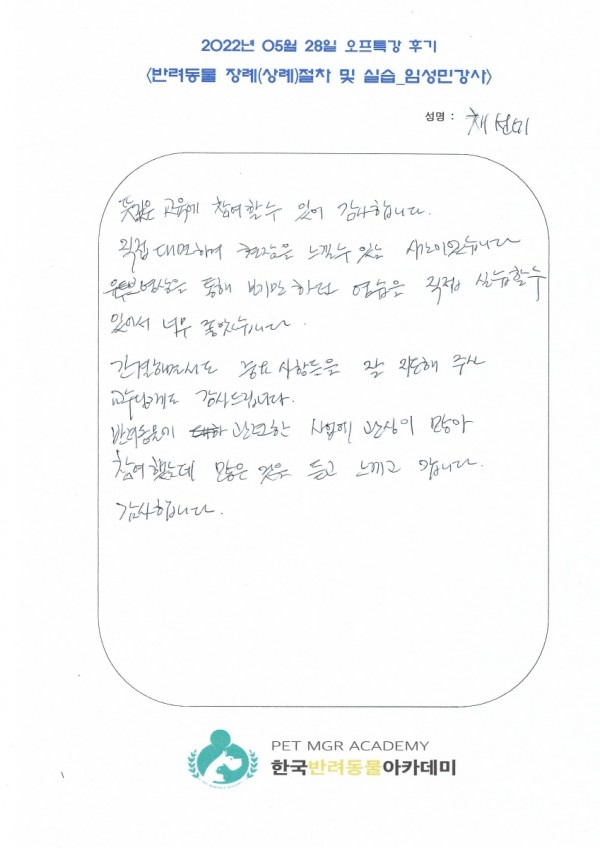 2022년 05월 28일 오프특강 후기
<반려동물 장례(상례)절차 및 실습_임성민강사>
성명 : 채선미
뜻깊은 교육에 참여할수 있어 감사합니다.
직접 대면하며 현장을 느낄수 있는 시간이었습니다
영상을 통해 보기만 하던 염습을 직접 실습할수
있어서 너무 좋았습니다.
간결해면서도 중요 사항들을 잘 지도해 주신
교수님께도 감사드립니다.
반려동물에 관련한 사업에 관심이 많아
참여했는데 많은 것을 듣고 느끼고 갑니다.
감사합니다.
PET MGR ACADEMY
한국반려동물아카데미